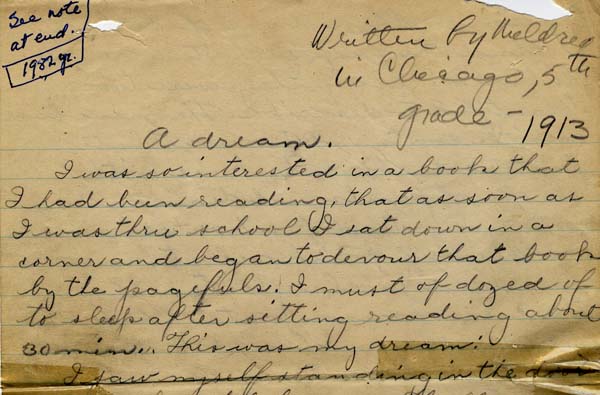 See note
at end.
1982 gr.
Written by Mildred
in Chicago, 5th
grade - 1913
A dream.
I was so interested in a book that
I had been reading, that as soon as
I was thru school I sat down in a
corner and began to devour that book
by the pagefuls. I must of dozed of
to sleep after sitting reading about
30 min.. This was my dream:
I saw myself standing in the door